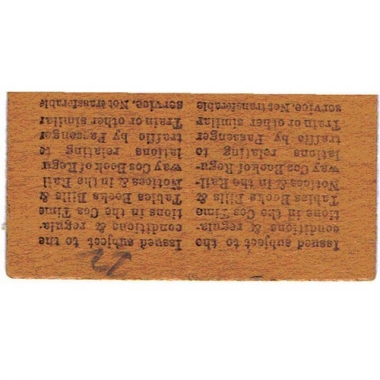 Issued subject to the
conditions & regula-
tions in the Cos Time
Tables Books Bills
Notices & in the Rail-
way Cos Book of Regu-
lations relating to
traffic by Passenger
Train or other similar
service. Not transferable
Issued subject to the
conditions & regula-
tions in the Cos Time
Tables Books Bills
Notices & in the Rail
way Cos Book of Regu
lations relating to
traffic by Passenger
Train or other similar
service. Not transferable